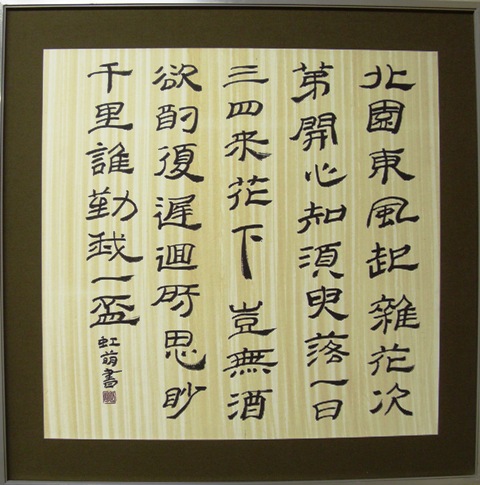 北園東風起雜花次
第開心知須臾落一日
三四来花下豈無酒
欲酌復遲迴所思眇
千里誰勤我一盃
虹萌書